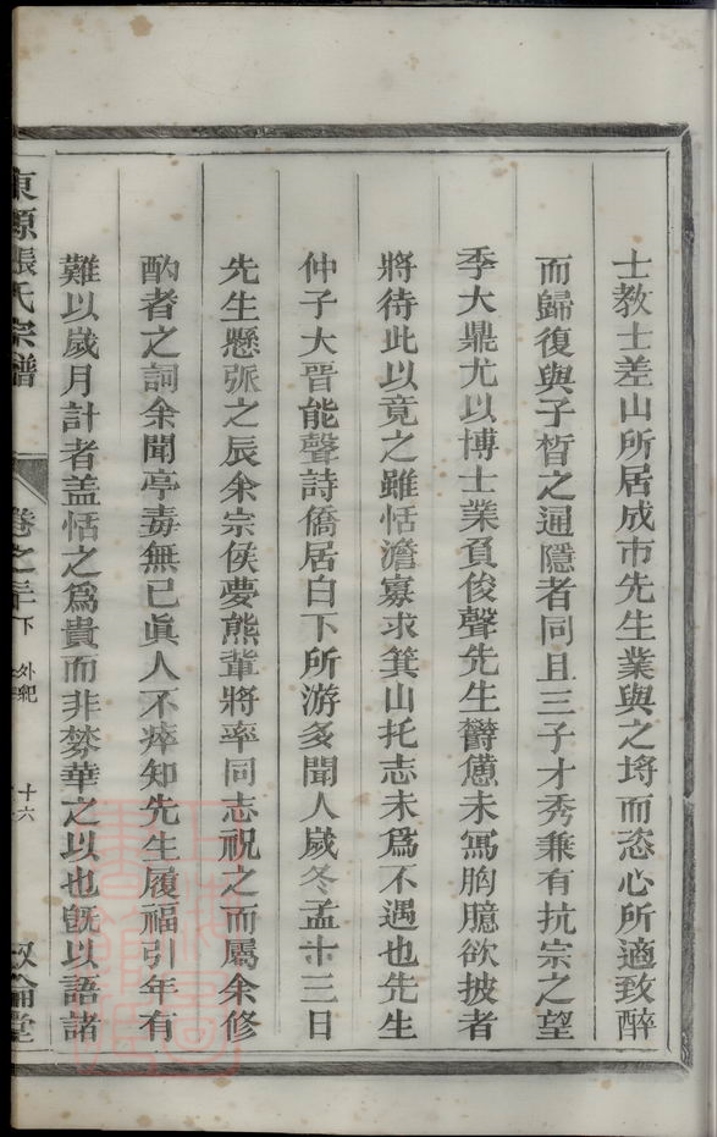 士教士差山所居成市先生業與之埒而恣心所適致醉
而歸復與子皙之逋隱者同且三子才秀兼有抗宗之望
季大鼎尤以博士業負俊聲先生欝憊未寫胸臆欲披者
將待此以竟之雖恬澹寡求箕山托志未爲不遇也先生
仲子大晋能聲詩僑居白下所游多聞人歲冬孟十三日
先生懸弧之辰余宗侯夢熊輩將率同志祝之而屬余修
酌者之詞余聞亭毒無已眞人不瘁知先生履福引年有
難以歲月計者盖恬之爲貴而非棼華之以也旣以語諸
東源張氏宗譜 卷之三十下 外紀 十六 叙倫堂